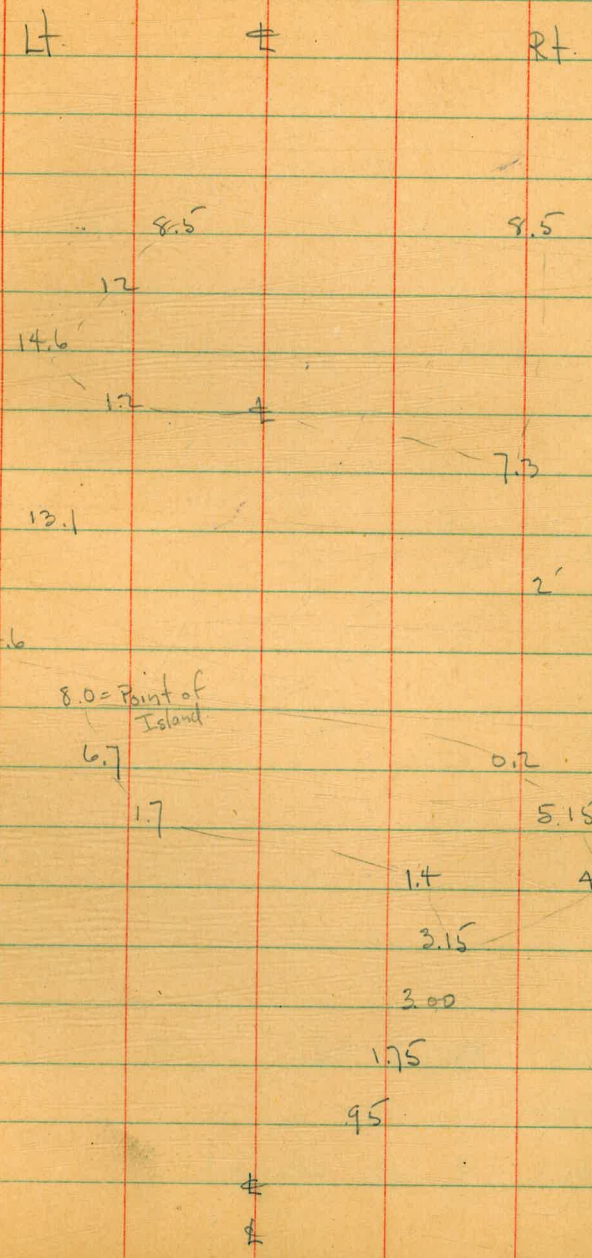 Lt. ℄ Rt.
8.5 8.5
12
14.6
1.2 ℄
7.3
13.1
2'
.6
8.0 = Point of
Island
6.7 0.2
1.7 5.15
1.4 4
3.15
3.00
1.75
.95
℄
℄